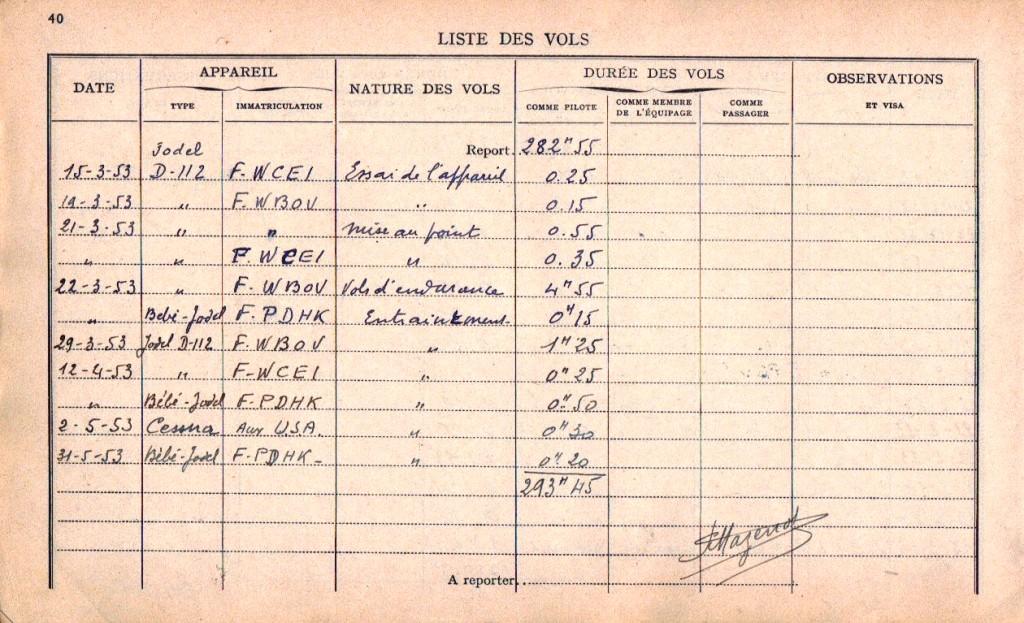 40
LISTE DES VOLS
DATE APPAREIL NATURE DES VOLS DURÉE DES VOLS OBSERVATIONS ET VISA
TYPE IMMATRICULATION COMME PILOTE COMME MEMBRE DE L'ÉQUIPAGE COMME PASSAGER
Jodel Report. 282ʰ55
15-3-53 D-112 F-WCEI Essai de l'appareil 0.25
19-3-53 " F-WBOV " 0.15
21-3-53 " " Mise au point 0.55
" " F-WCEI " 0.35
22-3-53 " F-WBOV Vols d'endurance 4ʰ55
" Bébé-Jodel F-PDHK Entrainement 0ʰ15
29-3-53 Jodel D-112 F-WBOV " 1ʰ25
12-4-53 " F-WCEI " 0ʰ25
" Bébé-Jodel F-PDHK " 0ʰ50
2-5-53 Cessna Aux USA. " 0ʰ30
31-5-53 Bébé-Jodel F-PDHK- " 0ʰ20
293ʰ45
A reporter.